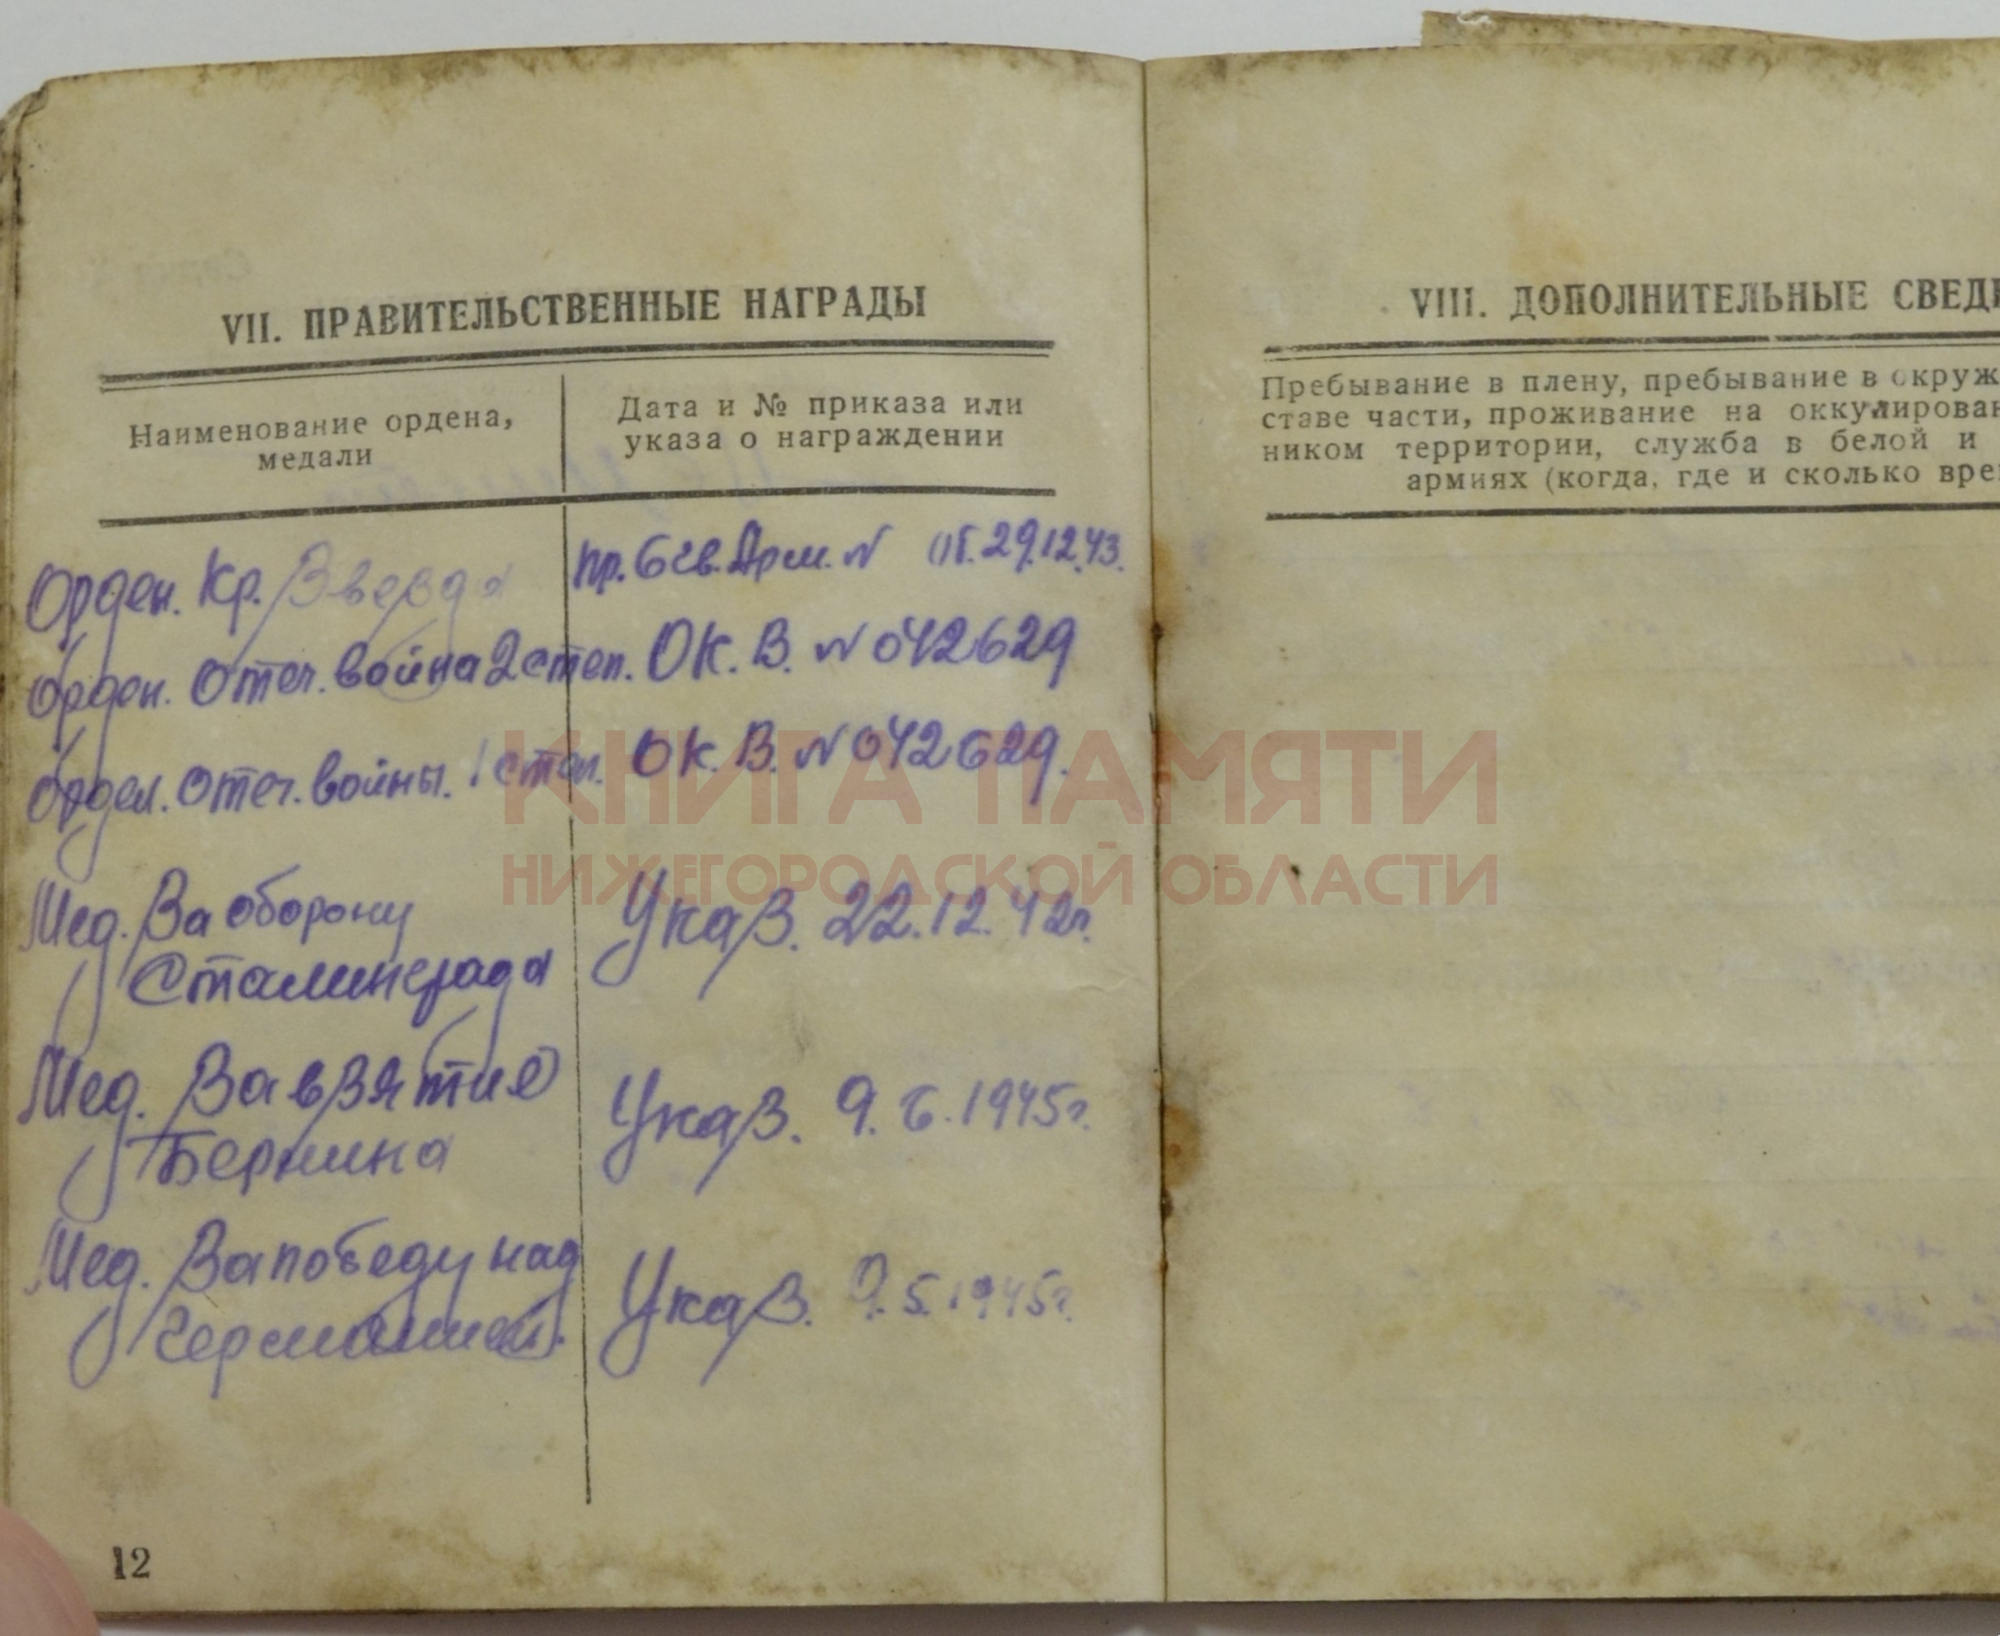 VII. ПРАВИТЕЛЬСТВЕННЫЕ НАГРАДЫ
Наименование ордена,
медали
Дата и № приказа или
указа о награждении
Орден. Кр. Звезда
пр. 6 гв. Арм. N от. 29.12.43.
Орден. Отеч. война 2 степ.
ОК. В. N 042629
Орден. Отеч. войны. 1 степ.
ОК. В. N 042629.
Мед. За оборону
Сталинграда
Указ. 22.12.42г.
Мед. За взятие
Берлина
Указ. 9.6.1945г.
Мед. За победу над
Германией.
Указ. 9.5.1945г.
12
VIII. ДОПОЛНИТЕЛЬНЫЕ СВЕДЕ
Пребывание в плену, пребывание в окруж
ставе части, проживание на оккупирован
ником территории, служба в белой и
армиях (когда, где и сколько вре
КНИГА ПАМЯТИ
НИЖЕГОРОДСКОЙ ОБЛАСТИ